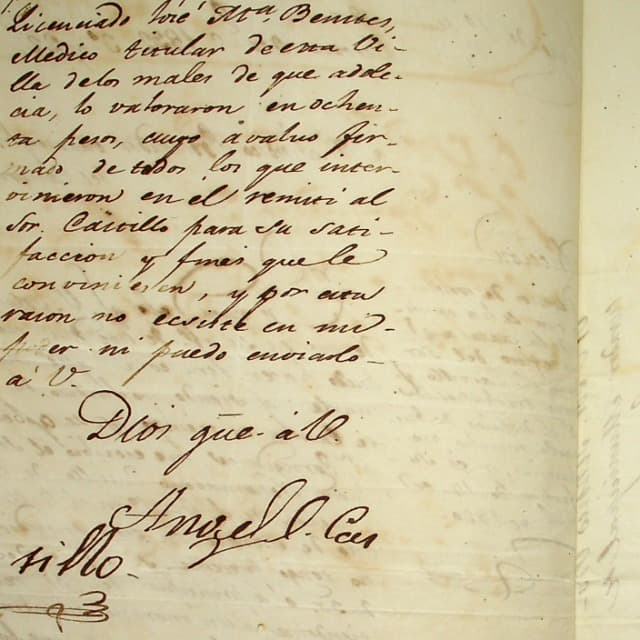 Licenciado José Ma. Benites,
Medico titular de esta Vi-
lla de los males de que adole-
cia, lo valoraron en ochen-
ta pesos, cuyo avaluo fir-
mado de todos los que inter-
vinieron en el remiti al
Sor. Castillo para su satis-
faccion y fines que le
conviniesen, y por esta
rason no ecsiste en mi
poder ni puedo enviarlo
á V.
Dios gue. á V.
Angel C. Cas
tillo.